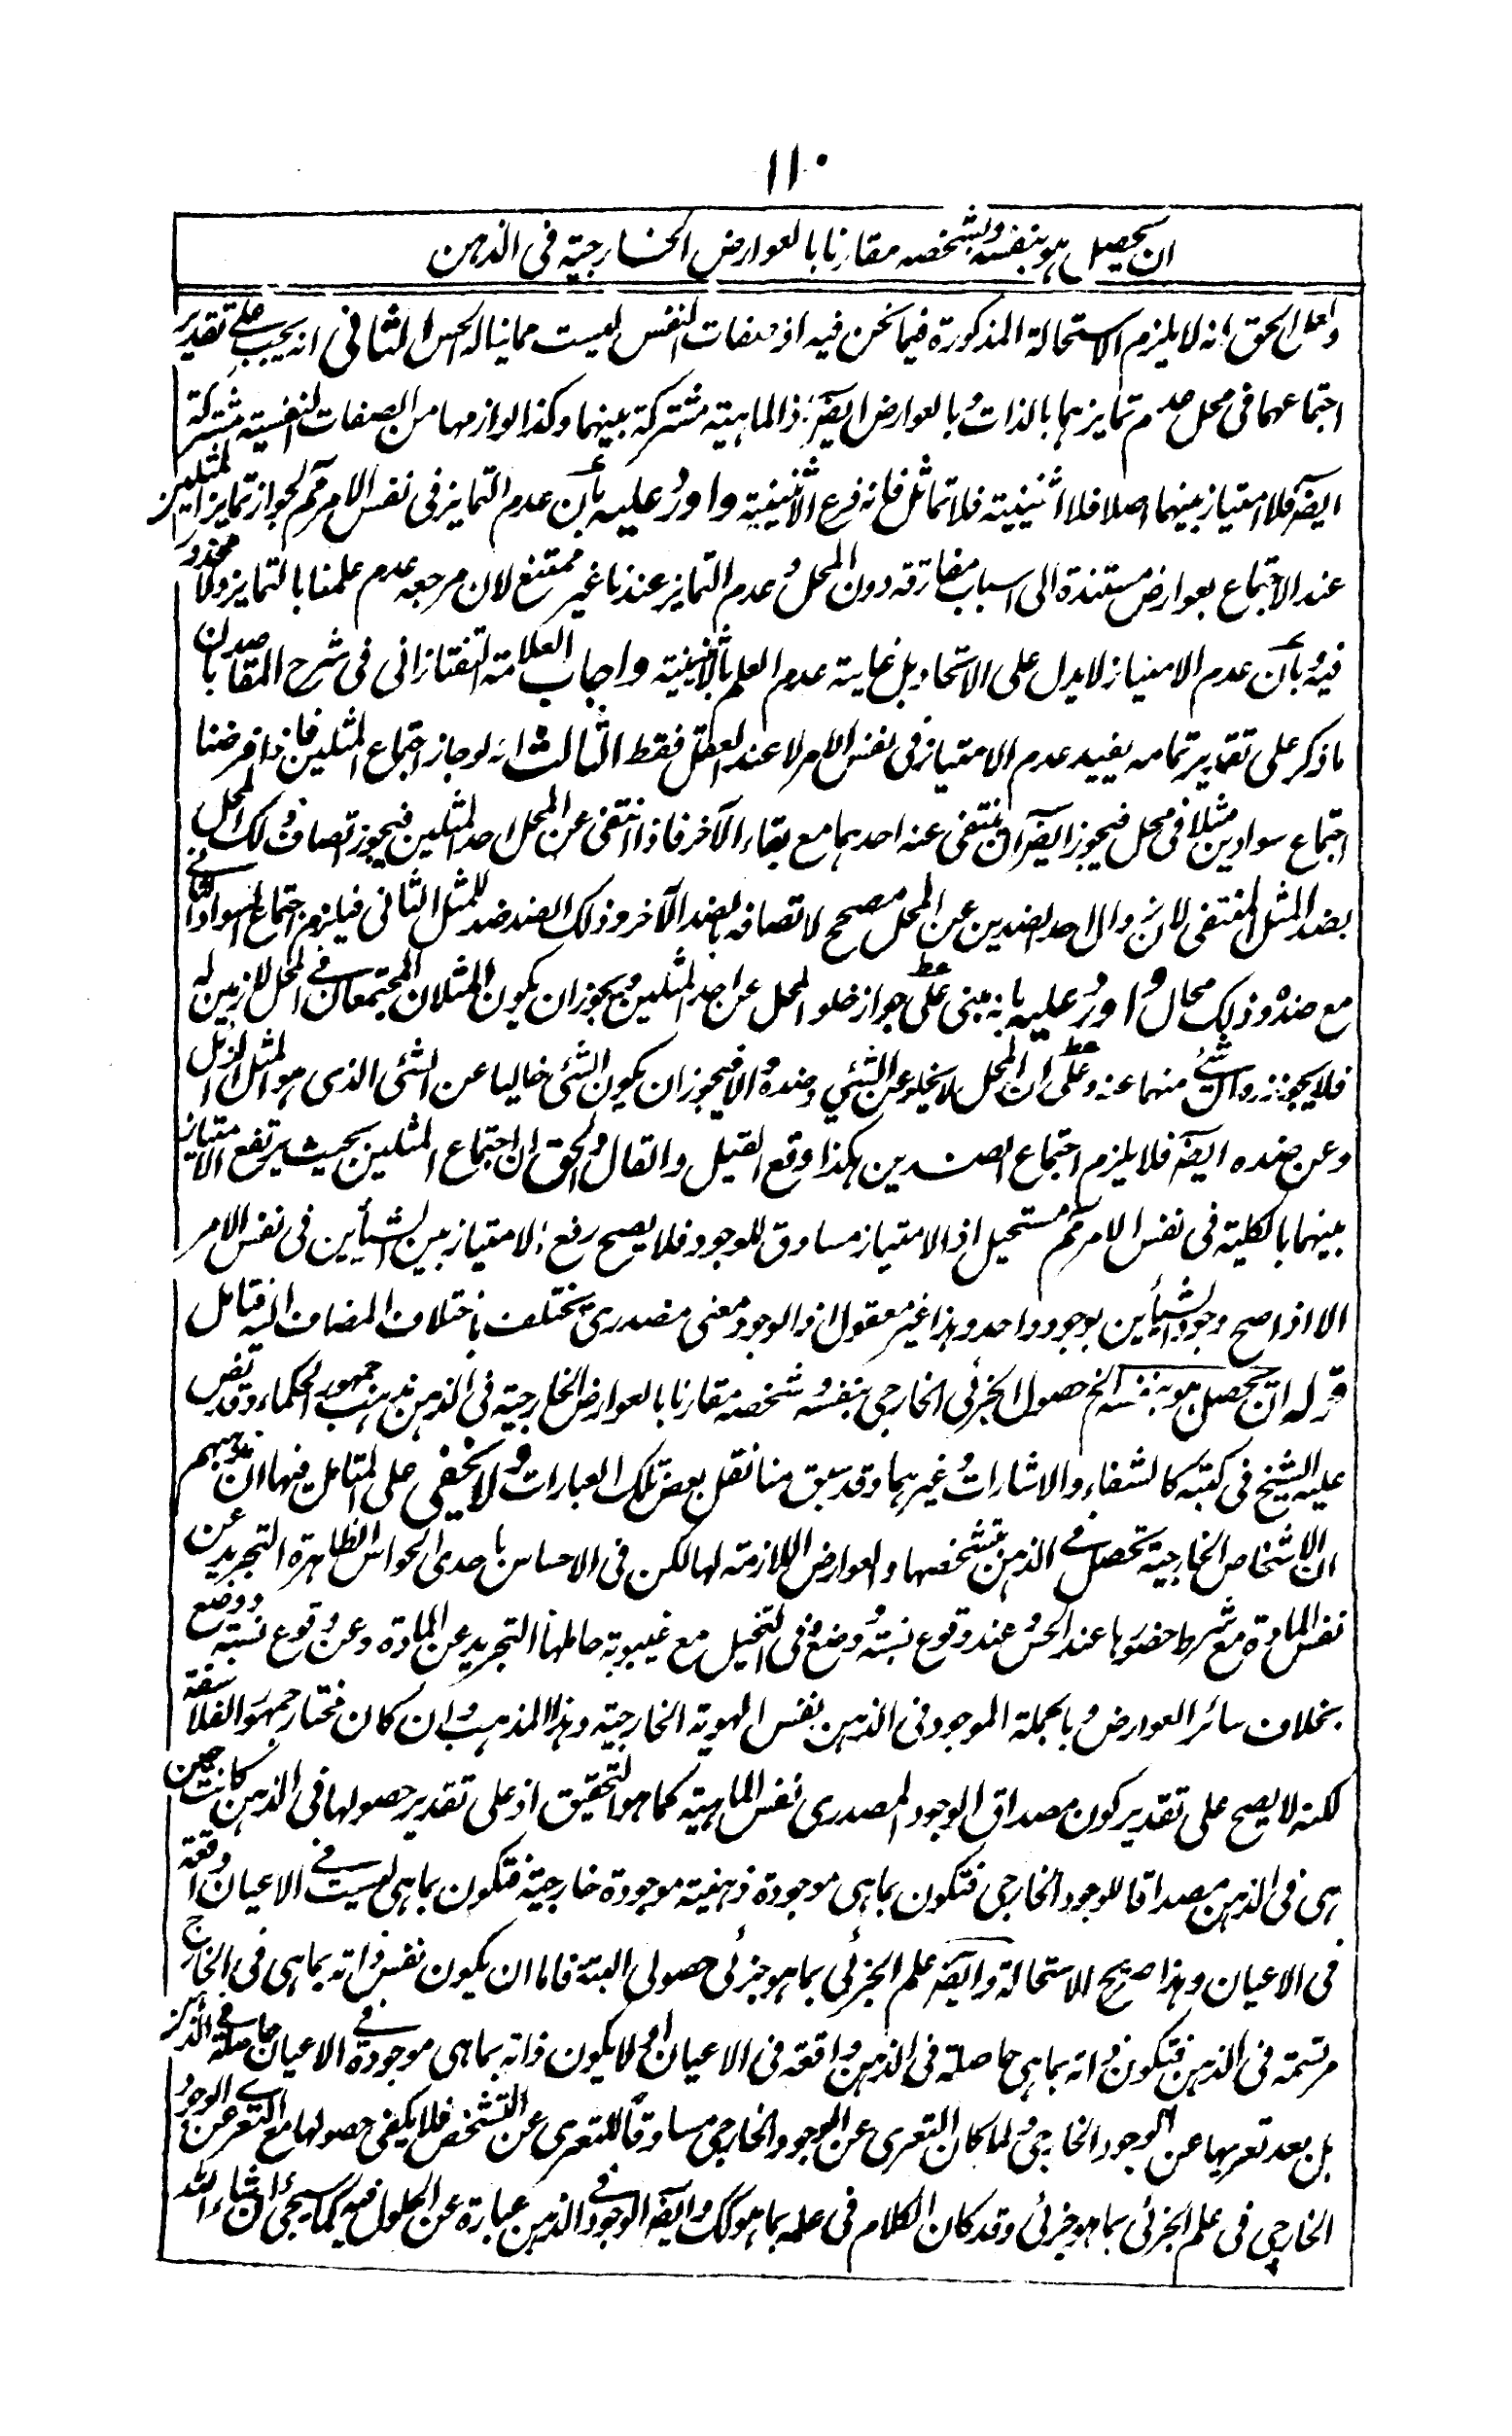 ١١٠
ان يحصل هو بنفسه وبشخصه مقارنا بالعوارض الخارجية فى الذهن
ولعل الحق انه لا يلزم الاستحالة المذكورة فيما نحن فيه اذ صفات النفس ليست مما يناله الحس الثانى انه يجب على تقدير
اجتماعهما فى محل عدم تمايزهما بالذات و بالعوارض ايضً اذ الماهية مشتركة بينهما وكذا لوازمها من الصفات النفسية مشتركة
ايضً فلا امتياز بينهما اصلا فلا اثنينية فلا تماثل فانه فرع الاثنينية واورد عليه بأن عدم التمايز فى نفس الامر مم لجواز تمايز المثلين
عند الاجتماع بعوارض مستندة الى اسباب مفارقة دون المحل و عدم التمايز عندنا غير ممتنع لان مرجعه عدم علمنا بالتمايز ولا محذور
فيه و بأن عدم الامتياز لا يدل على الاتحاد بل غايته عدم العلم بالاثنينية واجاب العلامة التفتازانى فى شرح المقاصد بان
ما ذكر على تقدير تمامه يفيد عدم الامتياز فى نفس الامر لا عند العقل فقط الثالث انه لو جاز اجتماع المثلين فاذا فرضنا
اجتماع سوادين مثلا فى محل فيجوز ايضً ان ينتفى عنه احدهما مع بقاء الآخر فاذا انتفى عن المحل احد المثلين فيجوز اتصاف ذلك المحل
بضد المثل المنتفى لان زوال احد الضدين عن المحل مصحح لاتصافه بالضد الآخر وذلك الضد ضد للمثل الثانى فيلزم اجتماع السواد الثانى
مع ضده وذلك محال و اورد عليه بانه مبنى على جواز خلو المحل عن احد المثلين ويجوز ان يكون المثلان المجتمعان فى المحل لازمين له
فلا يجوز زوال شئ منهما عنه وعلى ان المحل لا يخلو عن الشئ وضده والا فيجوز ان يكون الشئ خاليا عن الشئ الذى هو المثل الزائل
وعن ضده ايضً فلا يلزم اجتماع الضدين هكذا وقع القيل والقال و الحق ان اجتماع المثلين بحيث يرتفع الامتياز
بينهما بالكلية فى نفس الامر مم مستحيل اذ الامتياز مساوق للوجود فلا يصح رفع الامتياز بين الشيأين فى نفس الامر
الا اذا صح وجود الشيأين بوجود واحد وهذا غير معقول اذ الوجود معنى مصدرى يختلف باختلاف المضاف اليه فتامل
قوله ان يحصل هو بنفسه الخ حصول الجزئى الخارجى بنفسه و شخصه مقارنا بالعوارض الخارجية فى الذهن مذهب جمهور الحكماء وقد نص
عليه الشيخ فى كتبه كالشفاء والاشارات و غيرهما وقد سبق منا نقل بعض تلك العبارات و لا يخفى على المتامل فيها ان مذهبهم
ان الاشخاص الخارجية تحصل فى الذهن بتشخصها والعوارض اللازمة لها لكن فى الاحساس باحدى الحواس الظاهرة التجريد عن
نفس المادة مع شرط حضورها عند الحس و عند وقوع نسبة و وضع و فى التخيل مع غيبوبة حاملها التجريد عن المادة وعن وقوع نسبة ووضع
بخلاف سائر العوارض و بالجملة الموجود فى الذهن نفس الهوية الخارجية وهذا المذهب و ان كان مختار جمهور الفلاسفة
لكنه لا يصح على تقدير كون مصداق الوجود المصدرى نفس الماهية كما هو التحقيق اذ على تقدير حصولها فى الذهن كانت حين
هى فى الذهن مصداقا للوجود الخارجى فتكون بما هى موجودة ذهنية موجودة خارجية فتكون بما هى ليست فى الاعيان واقعة
فى الاعيان وهذا صريح الاستحالة وايضً علم الجزئى بما هو جزئى حصولى البتة فاما ان يكون نفس ذاته بما هى فى الخارج
مرتسمة فى الذهن فتكون ذاته بما هى حاصلة فى الذهن واقعة فى الاعيان او لا يكون ذاته بما هى موجودة فى الاعيان حاصلة فى الذهن
بل بعد تعريها عن الوجود الخارجى و لما كان التعرى عن الوجود الخارجى مساوقًا للتعرى عن التشخص فلا يكفى حصولها مع التعرى عن الوجود
الخارجى فى علم الجزئى بما هو جزئى وقد كان الكلام فى علمه بما هو كك وايضً الوجود فى الذهن عبارة عن الحلول فيه كما سيجئ انشاء الله